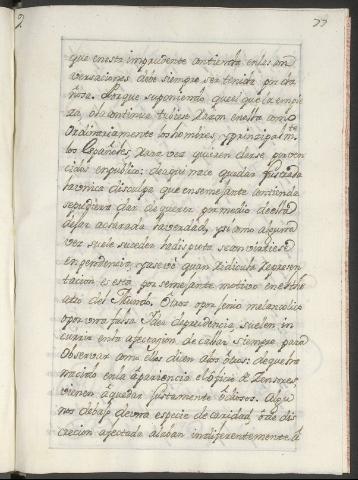 2 77
que en esta imprudente contienda en las con
versaciones debe siempre ser tenida por da
ñosa. Porque suponiendo que el que la empie
za, o la continua tubiese razon en esta como
ordinariamente los hombres, y principalm.te
los Españoles, rara vez quieren darse por ven
cidos en publico: de aqui nace quedar frustrada
la unica disculpa que en semejante contienda
se pudiera dar de querer por medio de ella
dejar aclarada la verdad, y si como alguna
vez suele suceder la disputa se convirtiese
en pendencia, ya se vè quan ridicula representa
tacion es esta por semejante motivo en el the
atro del Mundo. Otros o por genio melancolico
o por una falsa Idea de prudencia, suelen in
currir en la afectacion de callar siempre para
observar como ellos dicen a los otros: de que
nacido en la apariencia el Oficio de Zensores,
vienen à quedar justamente odiosos. Algu
nos debajo de una especie de caridad, o de dis
crecion afectada alaban indiferentemente à